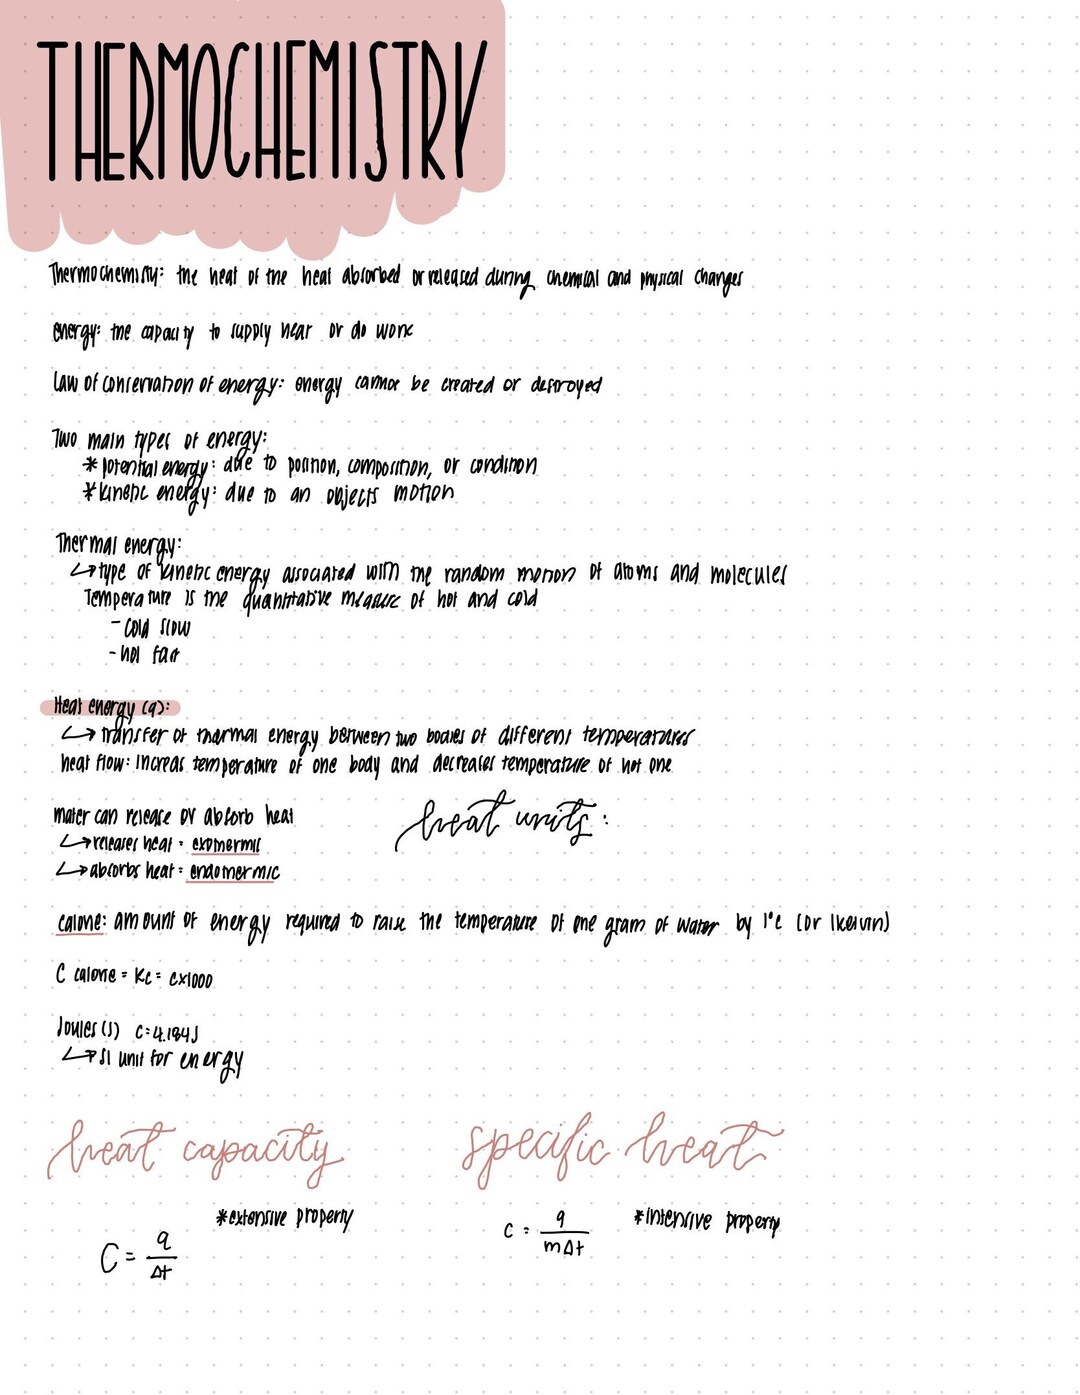 THERMOCHEMISTRY
Thermochemistry: the heat of the heat absorbed or released during chemical and physical changes
energy: the capacity to supply heat or do work
Law of conservation of energy: energy cannot be created or destroyed
Two main types of energy:
* potential energy: due to position, composition, or condition
* kinetic energy: due to an objects motion
Thermal energy:
↳ type of kinetic energy associated with the random motion of atoms and molecules
Temperature is the quantitative measure of hot and cold
- cold slow
- hot fast
Heat energy (q):
↳ transfer of thermal energy between two bodies of different temperatures
heat flow: increas temperature of one body and decreases temperature of hot one
mater can release or absorb heat
↳ releases heat = exothermic
↳ absorbs heat = endothermic
heat units:
calorie: amount of energy required to raise the temperature of one gram of water by 1°c (or 1kelvin)
C calorie = Kc = cx1000
Joules (J) c=4.184J
↳ SI unit for energy
heat capacity
*extensive property
C = q/Δt
specific heat
*intensive property
c = q/mΔt